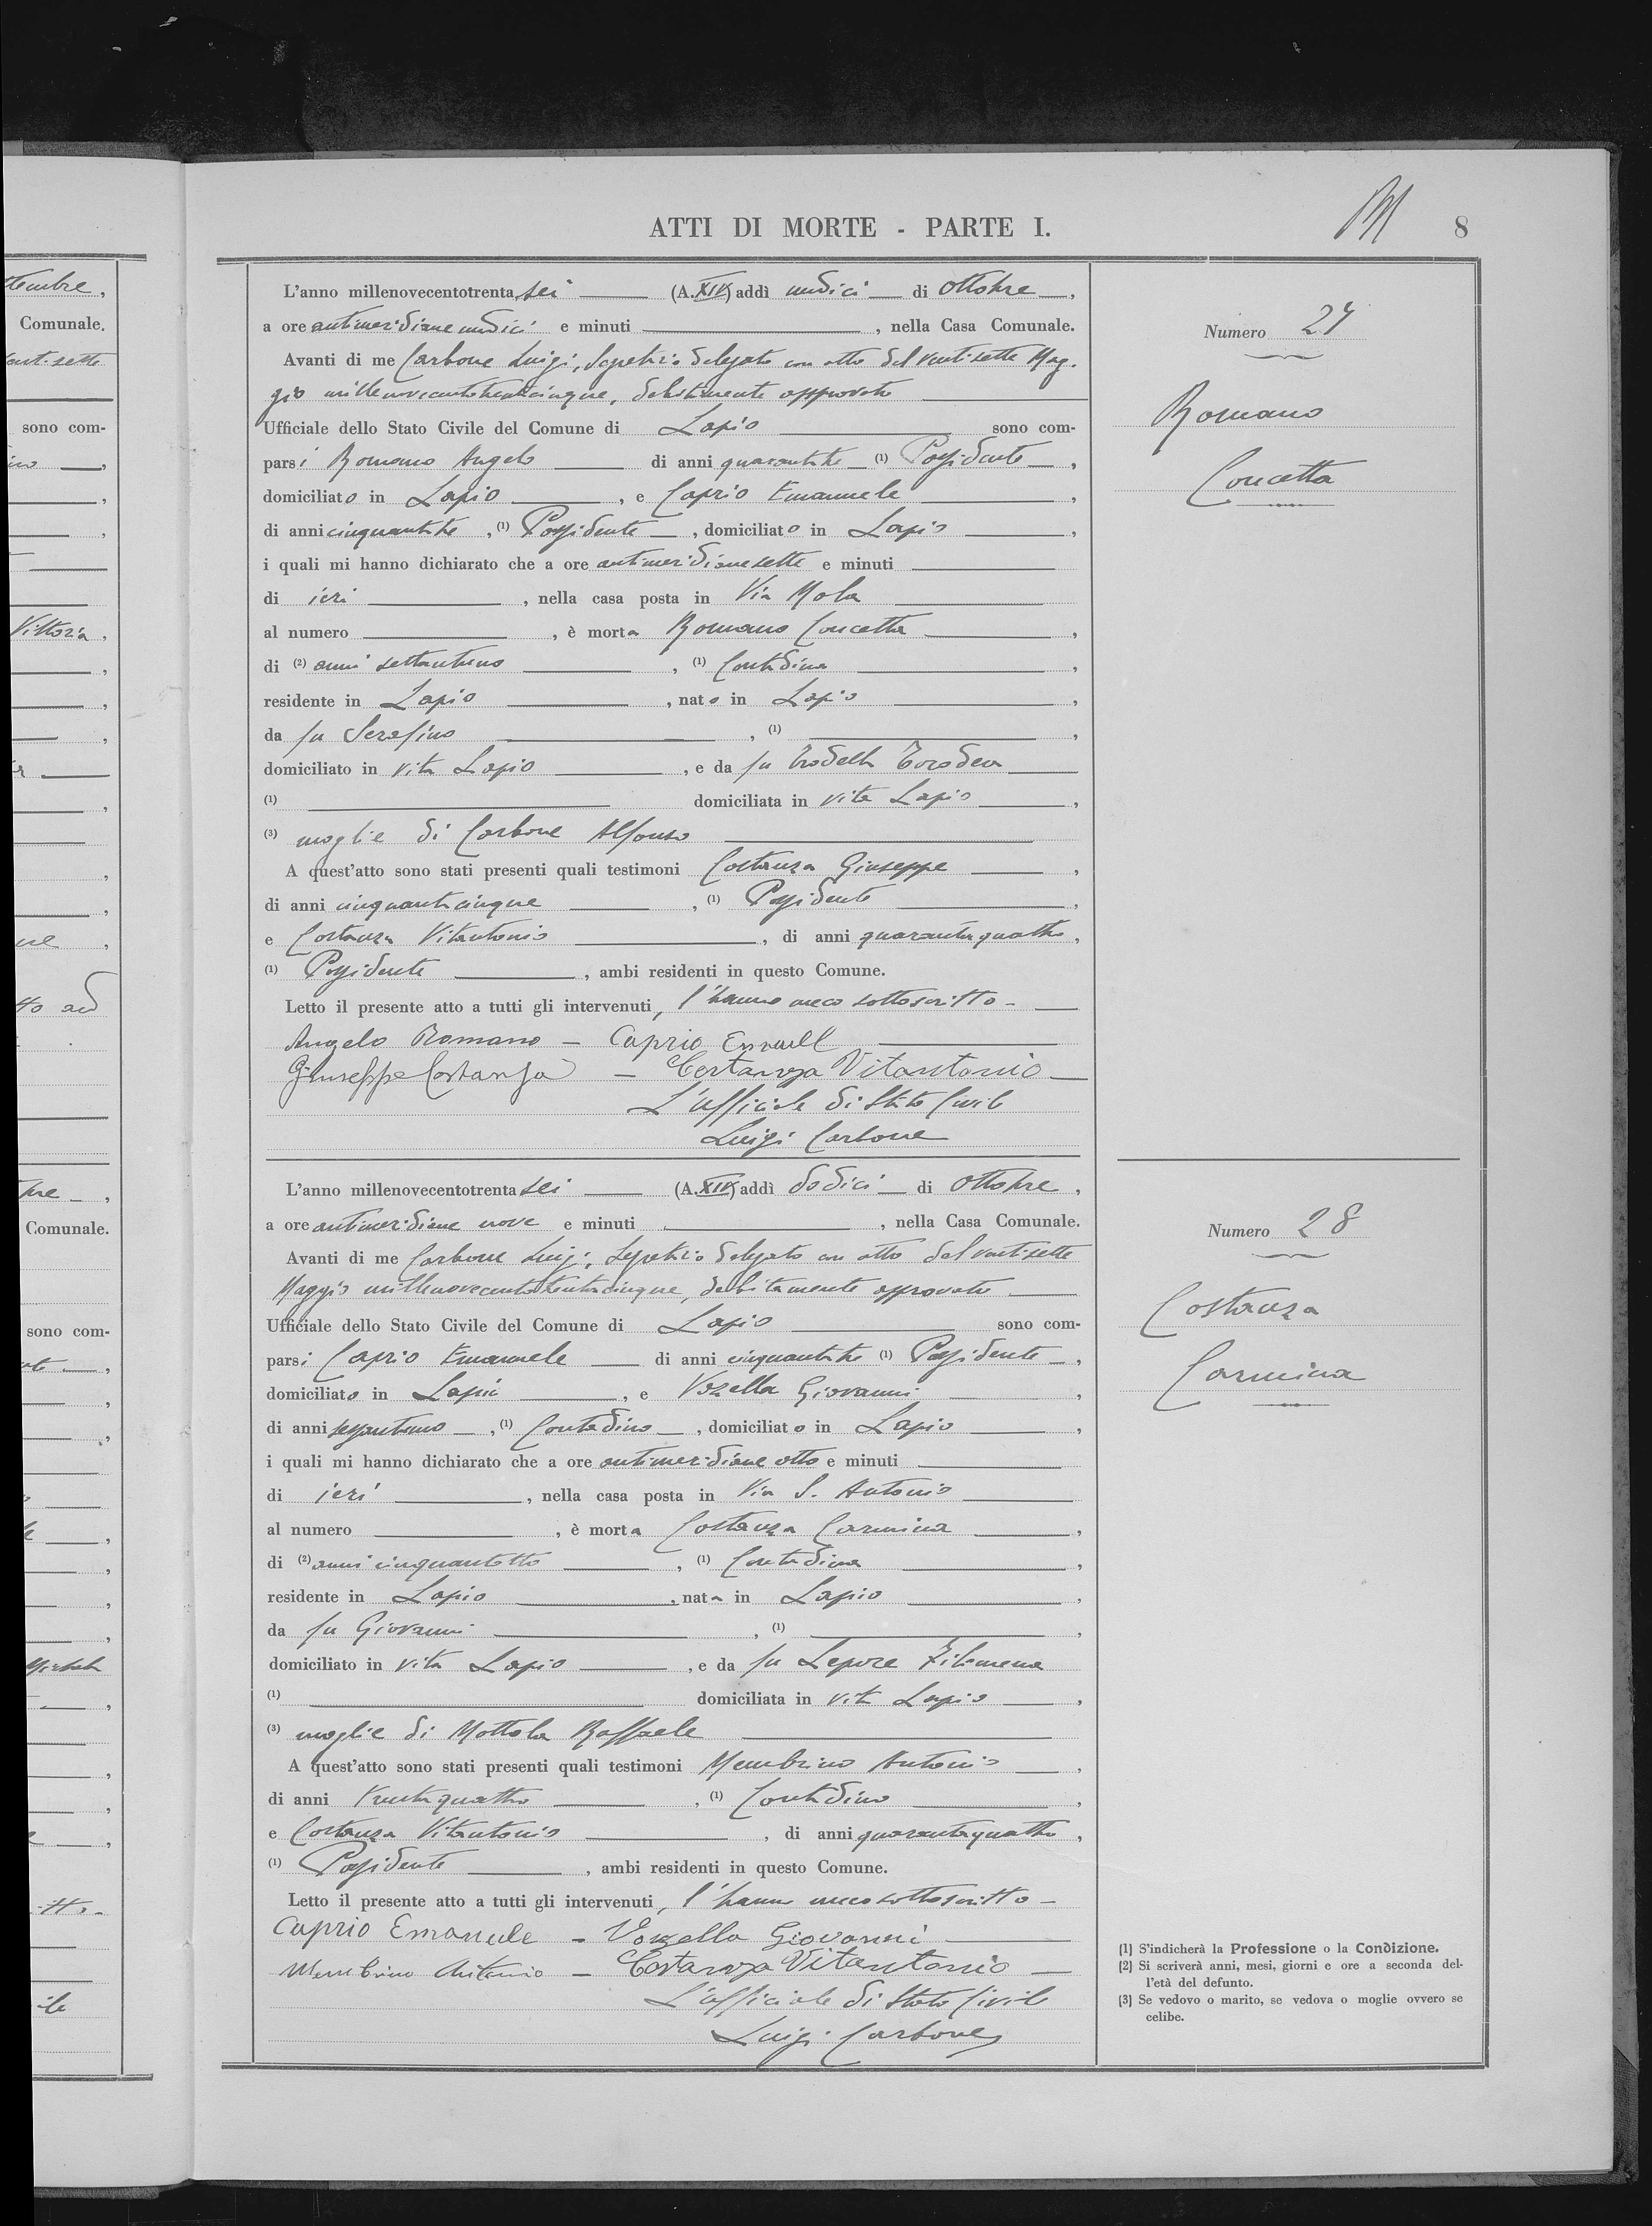 ATTI DI MORTE - PARTE I.
8
L'anno millenovecentotrenta sei (A. XIV) addì undici di Ottobre,
a ore antimeridiane undici e minuti , nella Casa Comunale.
Avanti di me Carbone Luigi, Segretario delegato con atto del ventisette Mag-
gio millenovecentotrentacinque, debitamente approvato
Ufficiale dello Stato Civile del Comune di Lapio sono com-
parsi Romano Angelo di anni quarantatre (1) Possidente,
domiciliato in Lapio, e Caprio Emanuele,
di anni cinquantatre, (1) Possidente, domiciliato in Lapio,
i quali mi hanno dichiarato che a ore antimeridiane sette e minuti
di ieri, nella casa posta in Via Mola
al numero , è morta Romano Concetta,
di (2) anni settantuno, (1) Contadina,
residente in Lapio, nato in Lapio,
da fu Serafino, (1) ,
domiciliato in vita Lapio, e da fu
(1) domiciliata in vita Lapio,
(3) moglie di Carbone Alfonso
A quest'atto sono stati presenti quali testimoni Costanza Giuseppe,
di anni cinquantacinque, (1) Possidente,
e Costanza Vitantonio, di anni quarantaquattro,
(1) Possidente, ambi residenti in questo Comune.
Letto il presente atto a tutti gli intervenuti, l'hanno meco sottoscritto -
Angelo Romano - Caprio
Giuseppe Costanza - Costanza Vitantonio
L'ufficiale di Stato Civile
Luigi Carbone
Numero 27
Romano
Concetta
L'anno millenovecentotrenta sei (A. XIV) addì dodici di Ottobre,
a ore antimeridiane nove e minuti , nella Casa Comunale.
Avanti di me Carbone Luigi, Segretario delegato con atto del ventisette
Maggio millenovecentotrentacinque, debitamente approvato
Ufficiale dello Stato Civile del Comune di Lapio sono com-
parsi Caprio Emanuele di anni cinquantatre (1) Possidente,
domiciliato in Lapio, e Vozella Giovanni,
di anni sessantuno, (1) Contadino, domiciliato in Lapio,
i quali mi hanno dichiarato che a ore antimeridiane otto e minuti
di ieri, nella casa posta in Via S. Antonio
al numero , è morta Costanza Carmina,
di (2) anni cinquantotto, (1) Contadina,
residente in Lapio, nata in Lapio,
da fu Giovanni, (1) ,
domiciliato in vita Lapio, e da fu Lepore Filomena
(1) domiciliata in vita Lapio,
(3) moglie di Mottola Raffaele
A quest'atto sono stati presenti quali testimoni Membrino Antonio,
di anni trentaquattro, (1) Contadino,
e Costanza Vitantonio, di anni quarantaquattro,
(1) Possidente, ambi residenti in questo Comune.
Letto il presente atto a tutti gli intervenuti, l'hanno meco sottoscritto -
Caprio Emanuele - Vozzella Giovanni
Membrino Antonio - Costanza Vitantonio
L'ufficiale di Stato Civile
Luigi Carbone
Numero 28
Costanza
Carmina
(1) S'indicherà la Professione o la Condizione.
(2) Si scriverà anni, mesi, giorni e ore a seconda del-
l'età del defunto.
(3) Se vedovo o marito, se vedova o moglie ovvero se
celibe.
tembre,
Comunale.
sono com-
Vittoria,
Comunale.
sono com-